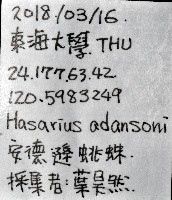 2018/03/16.
東海大學.THU
24.1776342
120.5983249
Hasarius adansoni
安德遜蛛蛛.
採集者:葉昊然.